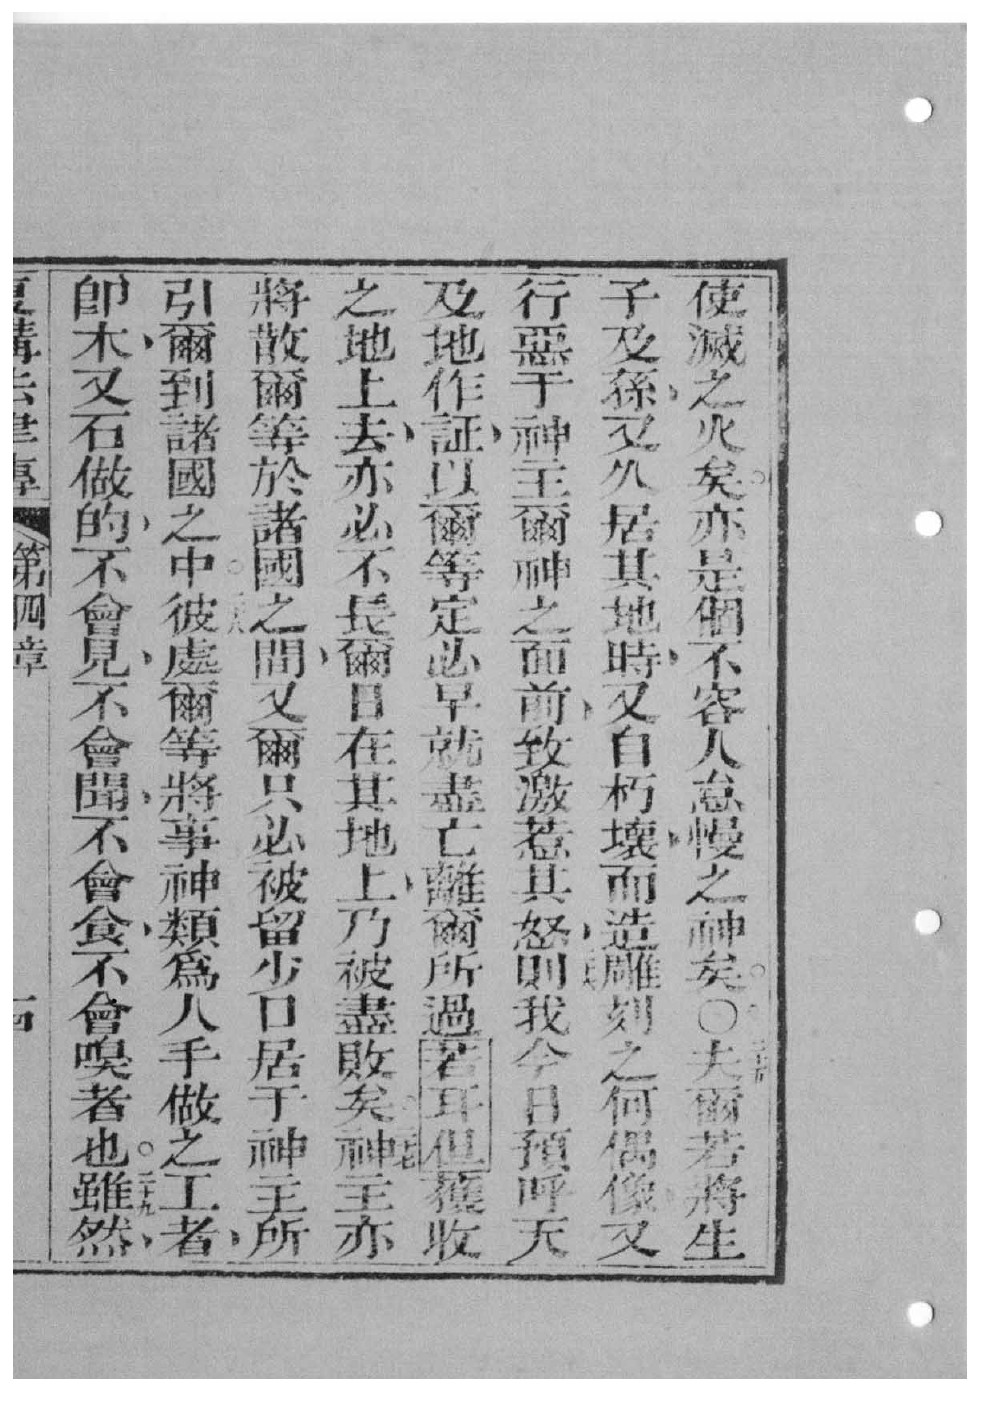 使滅之火矣。亦是個不容人怠慢之神矣。○二十五夫爾若將生
子及孫、又久居其地時、又自朽壞、而造雕刻之何偶像、又
行惡于神主爾神之面前、致激惹其怒、二十六則我今日預呼天
及地作証、以爾等定必早就盡亡離爾所過若耳但獲收
之地上去、亦必不長爾日在其地上、乃被盡敗矣。二十七神主亦
將散爾等於諸國之間、又爾只必被留少口居于神主所
引爾到諸國之中。二十八彼處爾等將事神類爲人手做之工者、
卽木、又石做的、不會見、不會聞、不會食、不會嗅者也。二十九雖然、
復講法律傳 第四章 十四